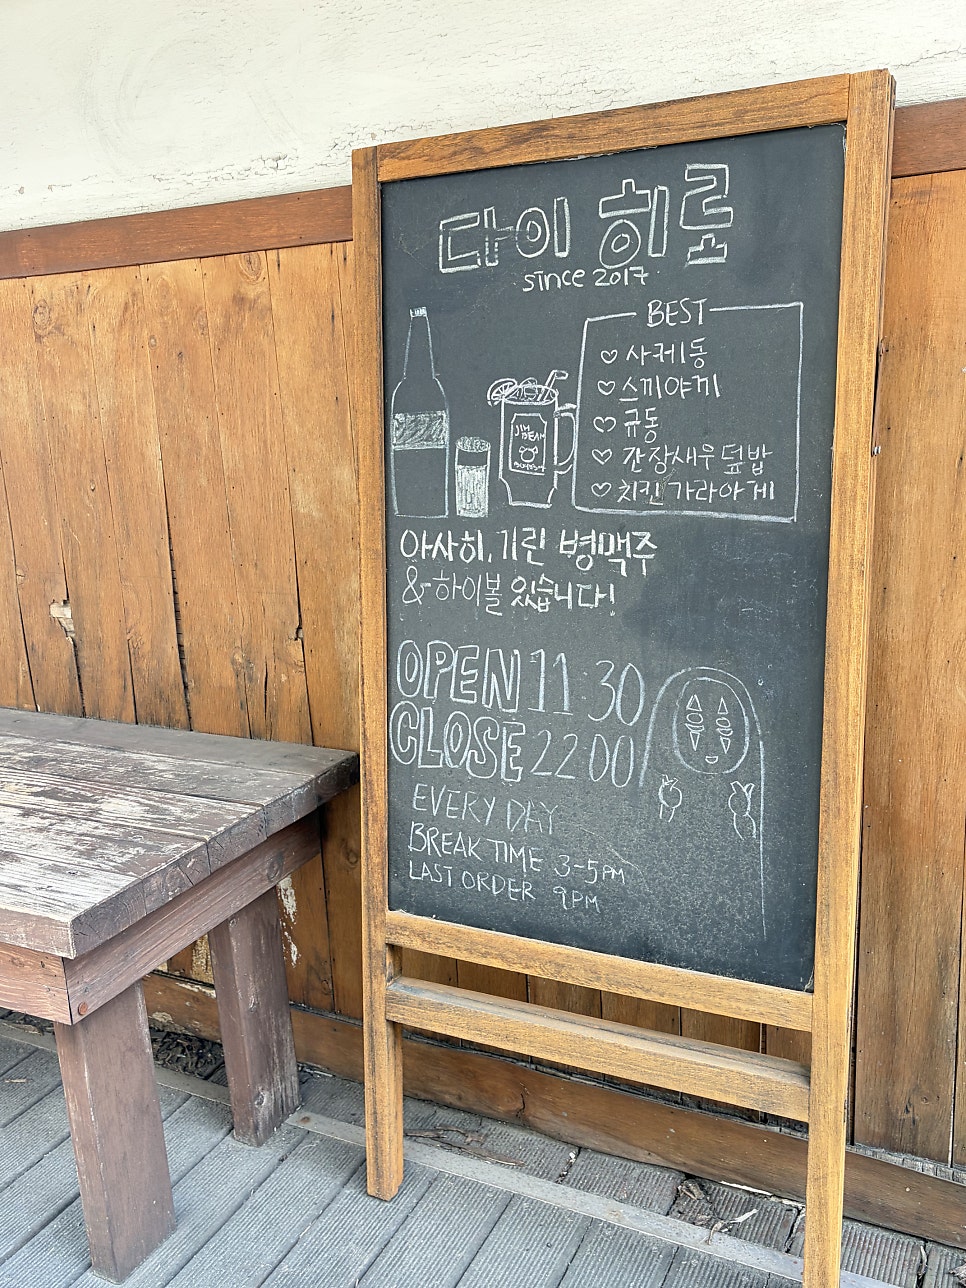 다이히로
since 2017
BEST
♡ 사케동
♡ 스끼야끼
♡ 규동
♡ 간장새우덮밥
♡ 치킨가라아게
JIM
BEAM
아사히, 기린 병맥주
& 하이볼 있습니다!
OPEN 11:30
CLOSE 22:00
EVERY DAY
BREAK TIME 3-5PM
LAST ORDER 9PM